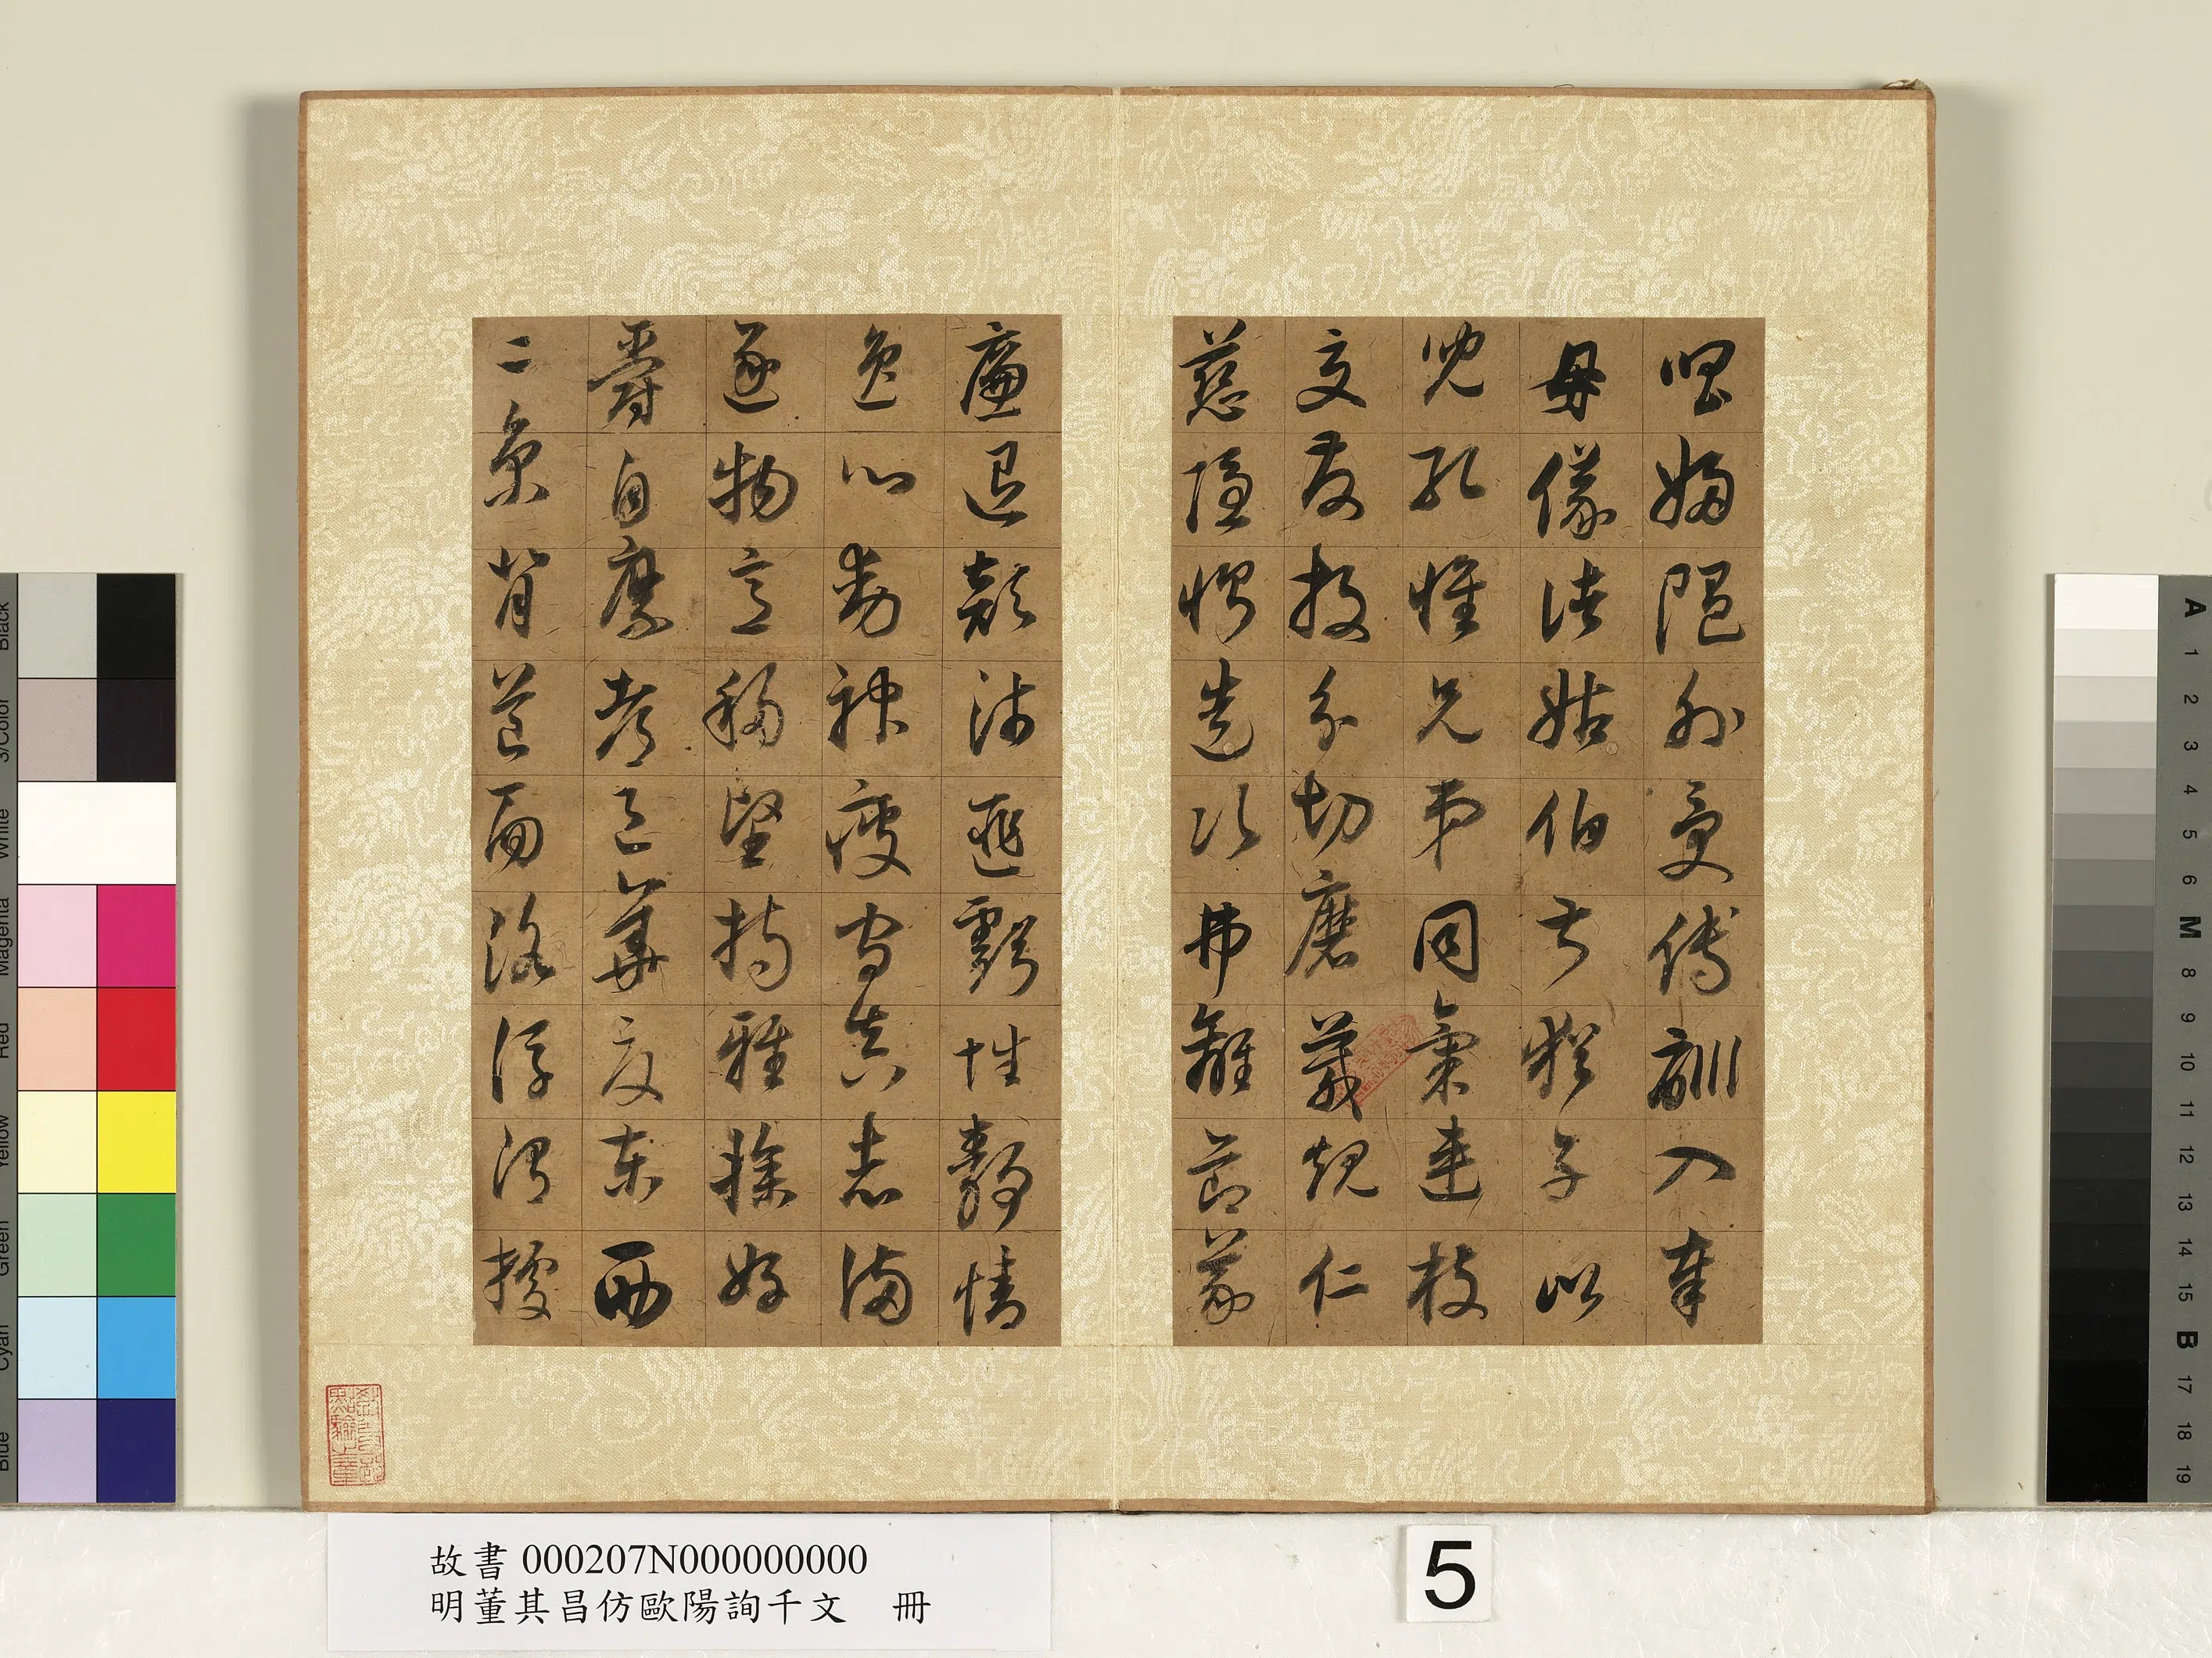 唱婦隨外受傅訓入奉
母儀諸姑伯叔猶子比
兒孔懷兄弟同氣連枝
交友投分切磨箴規仁
慈隱惻造次弗離節義
廉退顛沛匪虧性靜情
逸心動神疲守真志滿
逐物意移堅持雅操好
爵自縻都邑華夏東西
二京背邙面洛浮渭據
故書 000207N000000000
明董其昌仿歐陽詢千文 冊
5
Black
3/Color
White
Magenta
Red
Yellow
Green
Cyan
Blue
A 1 2 3 4 5 6 M 8 9 10 11 12 13 14 15 B 17 18 19